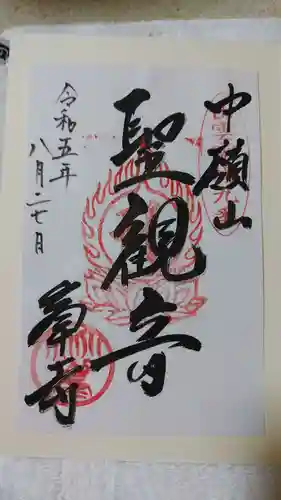 中嶺山
聖観音
寺
令和五年
八月二七日